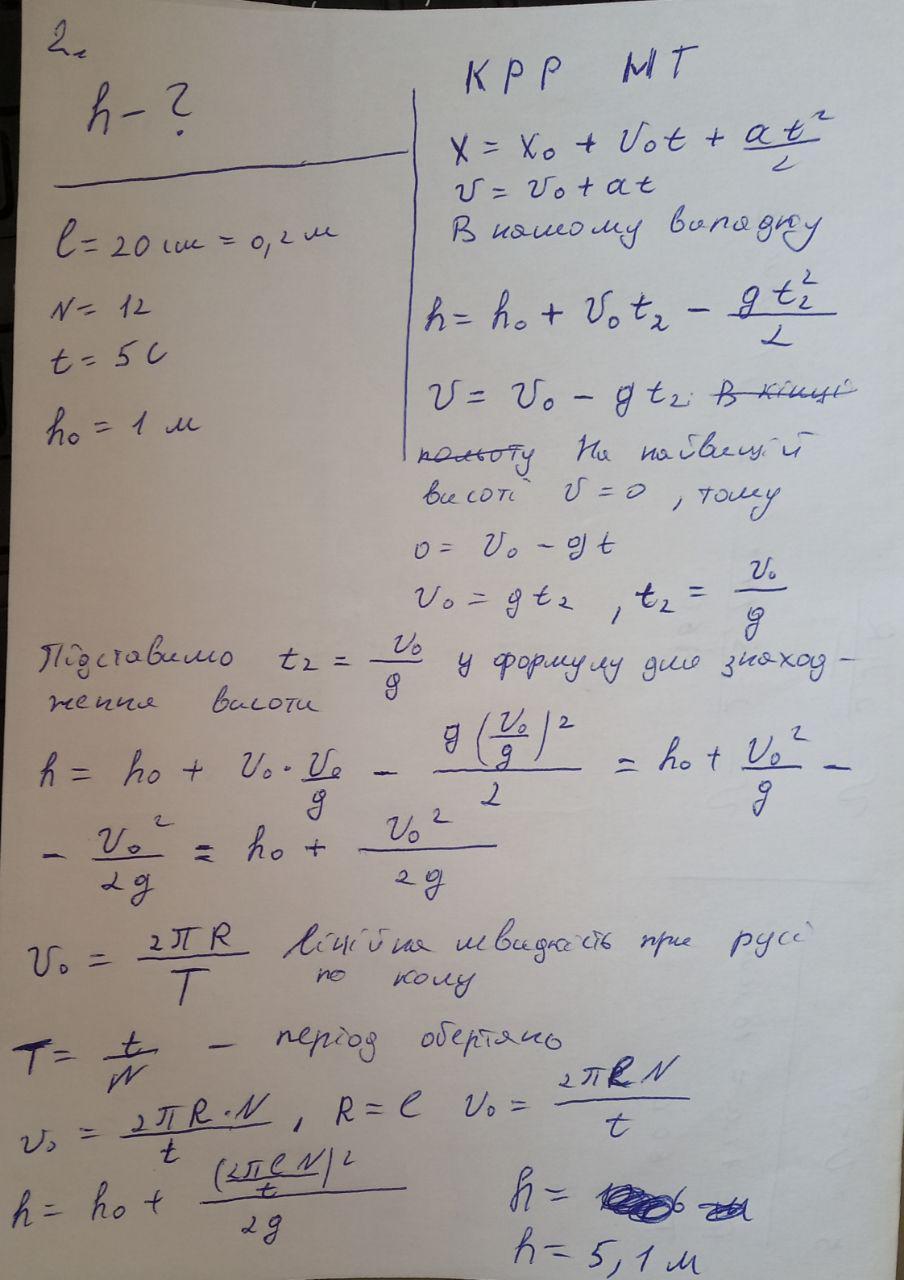 2.
h - ?
l = 20 см = 0,2 м
N = 12
t = 5 с
h₀ = 1 м
КРР МТ
x = x₀ + v₀t + at²/2
v = v₀ + at
В нашому випадку
h = h₀ + v₀t₂ - gt₂²/2
v = v₀ - gt₂. В кінці
польоту На найвищій
висоті v = 0, тому
0 = v₀ - gt
v₀ = gt₂, t₂ = v₀/g
Підставимо t₂ = v₀/g у формулу для знаход-
ження висоти
h = h₀ + v₀ · v₀/g - g(v₀/g)²/2 = h₀ + v₀²/g -
- v₀²/2g = h₀ + v₀²/2g
v₀ = 2πR/T лінійна швидкість при русі
по колу
T = t/N - період обертань
v₀ = 2πR·N/t, R = l v₀ = 2πlN/t
h = h₀ + (2πlN/t)²/2g
h =
h = 5,1 м